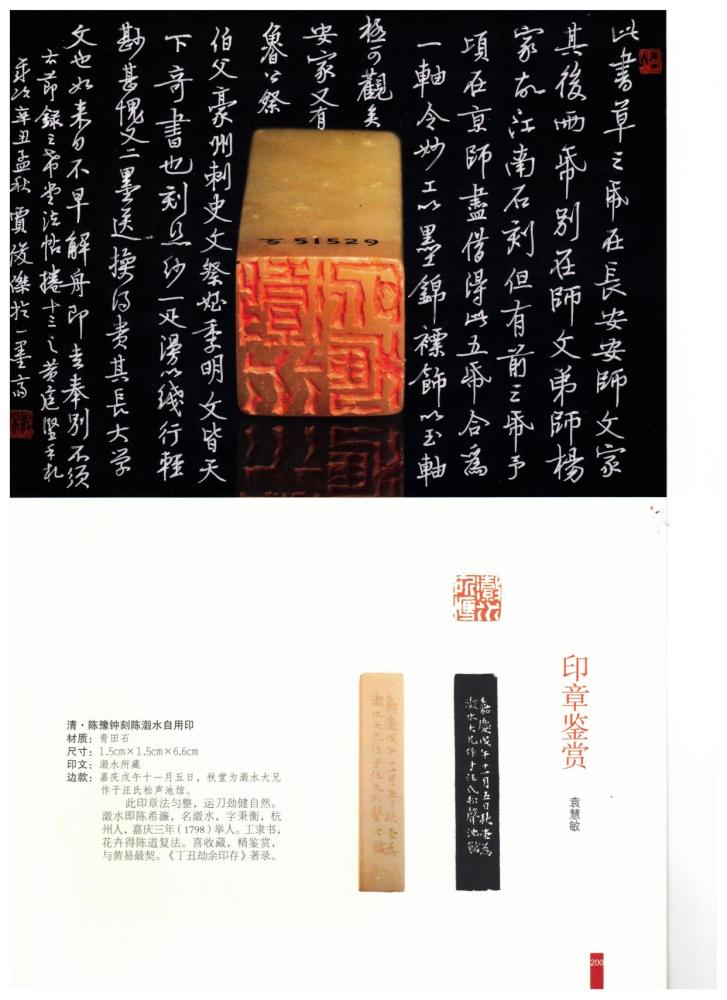 此書草三紙在長安安師文家
其後兩紙別在師文弟師楊
家故江南石刻但有前三紙予
頃在京師盡借得此五紙合為
一軸令妙工以墨錦褾飾以玉軸
極可觀矣
安家又有
魯公祭
伯父豪州刺史文祭姪季明文皆天
下奇書也刻
甚愧又二墨送換得貴其長大学
文也如来日不早解舟即去奉別不須
古節録三希堂法帖捲十三之黄庭堅手札
歲次辛丑孟秋賈俊傑於一墨齋
51529
印章鉴赏
袁慧敏
嘉慶戊午十一月五日秋堂為
澂水大兄作于汪氏松聲池館
清·陈豫钟刻陈澂水自用印
材质：青田石
尺寸：1.5cm×1.5cm×6.6cm
印文：澂水所藏
边款：嘉庆戊午十一月五日，秋堂为澂水大兄
作于汪氏松声池馆。
此印章法匀整，运刀劲健自然。
澂水即陈希濂，名澂水，字秉衡，杭
州人，嘉庆三年（1798）举人。工隶书，
花卉得陈道复法。喜收藏，精鉴赏，
与黄易最契。《丁丑劫余印存》著录。
200